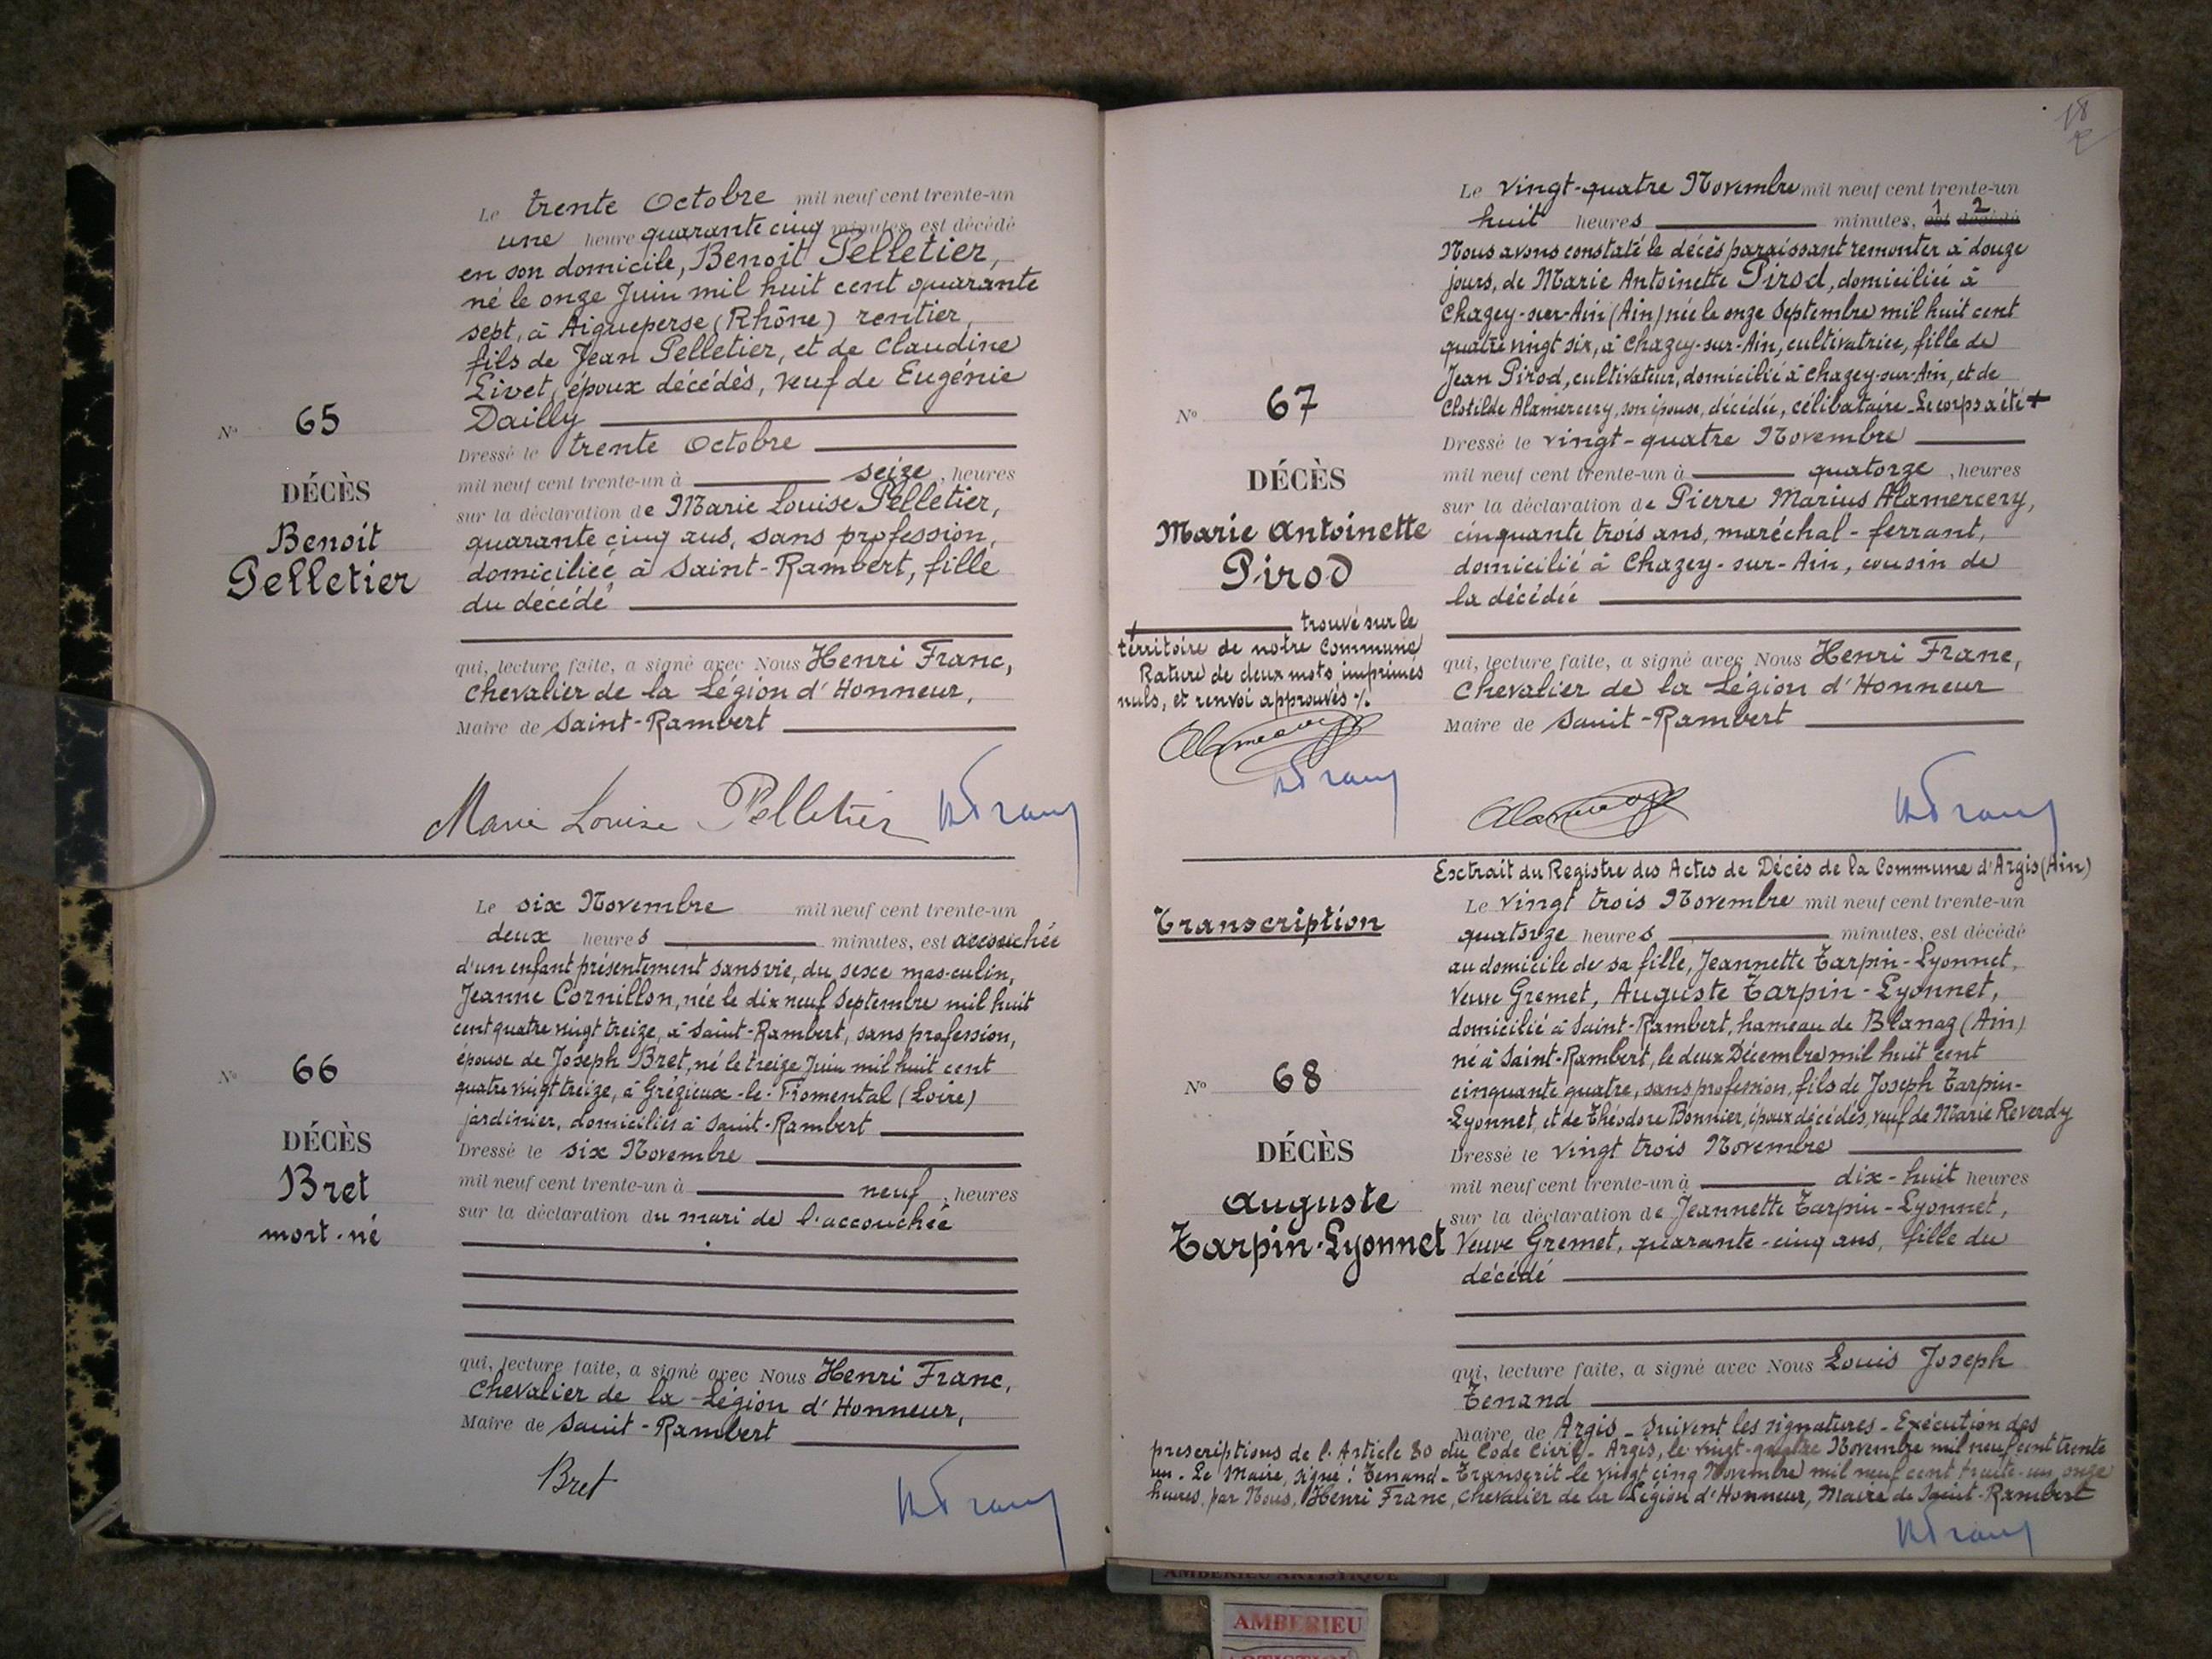 Le trente Octobre mil neuf cent trente-un
une heure quarante cinq minutes, est décédé
en son domicile, Benoit Pelletier,
né le onze Juin mil huit cent quarante
sept, à Aigueperse (Rhône) rentier,
fils de Jean Pelletier, et de Claudine
Livet, époux décédés, veuf de Eugénie
Dailly
Dressé le trente Octobre
mil neuf cent trente-un à seize, heures
sur la déclaration de Marie Louise Pelletier,
quarante cinq ans, sans profession,
domiciliée à Saint-Rambert, fille
du décédé
qui, lecture faite, a signé avec Nous Henri Franc,
Chevalier de la Légion d'Honneur,
Maire de Saint-Rambert
N° 65
DÉCÈS
Benoit
Pelletier
Marie Louise Pelletier HFranc
Le six Novembre mil neuf cent trente-un
deux heures minutes, est accouchée
d'un enfant présentement sans vie, du sexe mas-culin,
Jeanne Cornillon, née le dix neuf Septembre mil huit
cent quatre vingt treize, à Saint-Rambert, sans profession,
épouse de Joseph Bret, né le treize Juin mil huit cent
quatre vingt treize, à Grézieux-le-Fromental (Loire)
jardinier, domiciliés à Saint-Rambert
Dressé le six Novembre
mil neuf cent trente-un à neuf, heures
sur la déclaration du mari de l'accouchée
qui, lecture faite, a signé avec Nous Henri Franc,
Chevalier de la Légion d'Honneur,
Maire de Saint-Rambert
N° 66
DÉCÈS
Bret
mort-né
Bret HFranc
18
Le vingt-quatre Novembre mil neuf cent trente-un
huit heures minutes, 1 est 2 décédé
Nous avons constaté le décès paraissant remonter à douze
jours, de Marie Antoinette Pirod, domiciliée à
Chazey-sur-Ain (Ain) née le onze Septembre mil huit cent
quatre vingt six, à Chazey-sur-Ain, cultivatrice, fille de
Jean Pirod, cultivateur, domicilié à Chazey-sur-Ain, et de
Clotilde Alamercery, son épouse, décédée, célibataire_Le corps a été +
Dressé le vingt-quatre Novembre
mil neuf cent trente-un à quatorze, heures
sur la déclaration de Pierre Marius Alamercery,
cinquante trois ans, maréchal-ferrant,
domicilié à Chazey-sur-Ain, cousin de
la décédée
qui, lecture faite, a signé avec Nous Henri Franc,
Chevalier de la Légion d'Honneur
Maire de Saint-Rambert
N° 67
DÉCÈS
Marie Antoinette
Pirod
+ trouvé sur le
territoire de notre Commune
Rature de deux mots imprimés
nuls, et renvoi approuvés %.
Alamercery
HFranc
Alamercery HFranc
Extrait du Registre des Actes de Décès de la Commune d'Argis (Ain)
Transcription
Le vingt trois Novembre mil neuf cent trente-un
quatorze heures minutes, est décédé
au domicile de sa fille, Jeannette Tarpin-Lyonnet,
Veuve Gremet, Auguste Tarpin-Lyonnet,
domicilié à Saint-Rambert, hameau de Blanaz (Ain)
né à Saint-Rambert, le deux Décembre mil huit cent
cinquante quatre, sans profession, fils de Joseph Tarpin-
Lyonnet, et de Théodore Bonnier, époux décédés, veuf de Marie Reverdy
Dressé le vingt trois Novembre
mil neuf cent trente-un à dix-huit heures
sur la déclaration de Jeannette Tarpin-Lyonnet,
Veuve Gremet, quarante-cinq ans, fille du
décédé
qui, lecture faite, a signé avec Nous Louis Joseph
Tenand
Maire de Argis_Suivent les signatures_Exécution des
prescriptions de l'Article 80 du Code Civil_Argis, le vingt-quatre Novembre mil neuf cent trente
un_Le Maire, signé: Tenand_Transcrit le vingt cinq Novembre mil neuf cent trente-un onze
heures, par Nous, Henri Franc, Chevalier de la Légion d'Honneur, Maire de Saint-Rambert
N° 68
DÉCÈS
Auguste
Tarpin-Lyonnet
HFranc
AMBERIEU ARTISTIQUE
AMBERIEU
ARTISTIQUE